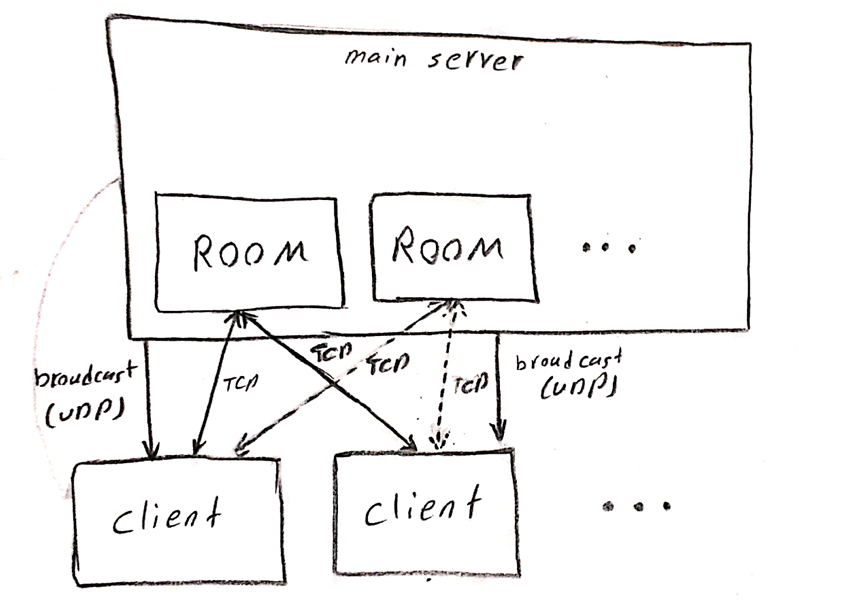 main server
ROOM
ROOM
...
broudcast
(UDP)
TCP
TCP
TCP
TCP
broudcast
(UDP)
client
client
...